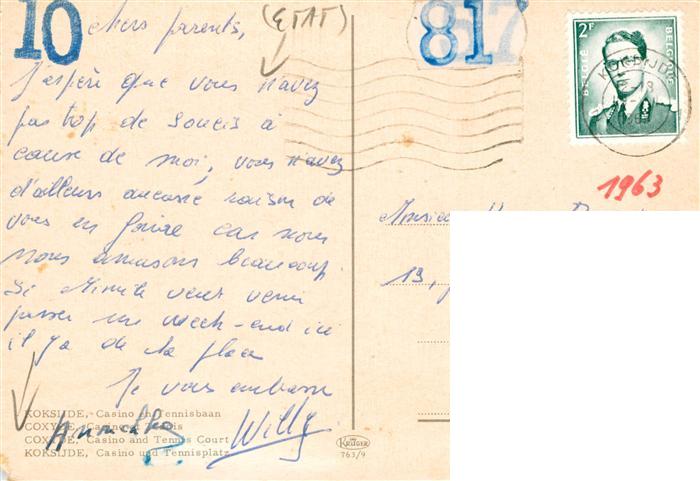 10
chers parents,
(ETAT)
817
J'espère que vous n'avez
pas trop de soucis à
cause de moi, vous n'avez
d'ailleurs aucune raison de
vous en faire car nous
nous amusons beaucoup.
Si Mimile veut venir
passer un week-end ici
il y a de la place
Je vous embrasse
Willy
KOKSIJDE, Casino en Tennisbaan
COXYDE, Casino et Tennis
COXYDE, Casino and Tennis Court
KOKSIJDE, Casino und Tennisplatz
KRUGER
763/9
2F
BELGIE
BELGIQUE
KOKSIJDE
1963
Monsieur
13,